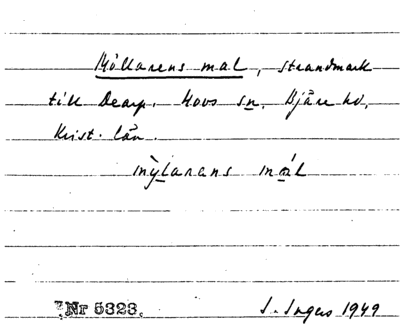 Möllarens mal, strandmark
till Dearp. Hovs sn. Bjäre hd,
Krist. län.
mỳlarans mál
Nr 5323. S. Ingers 1949